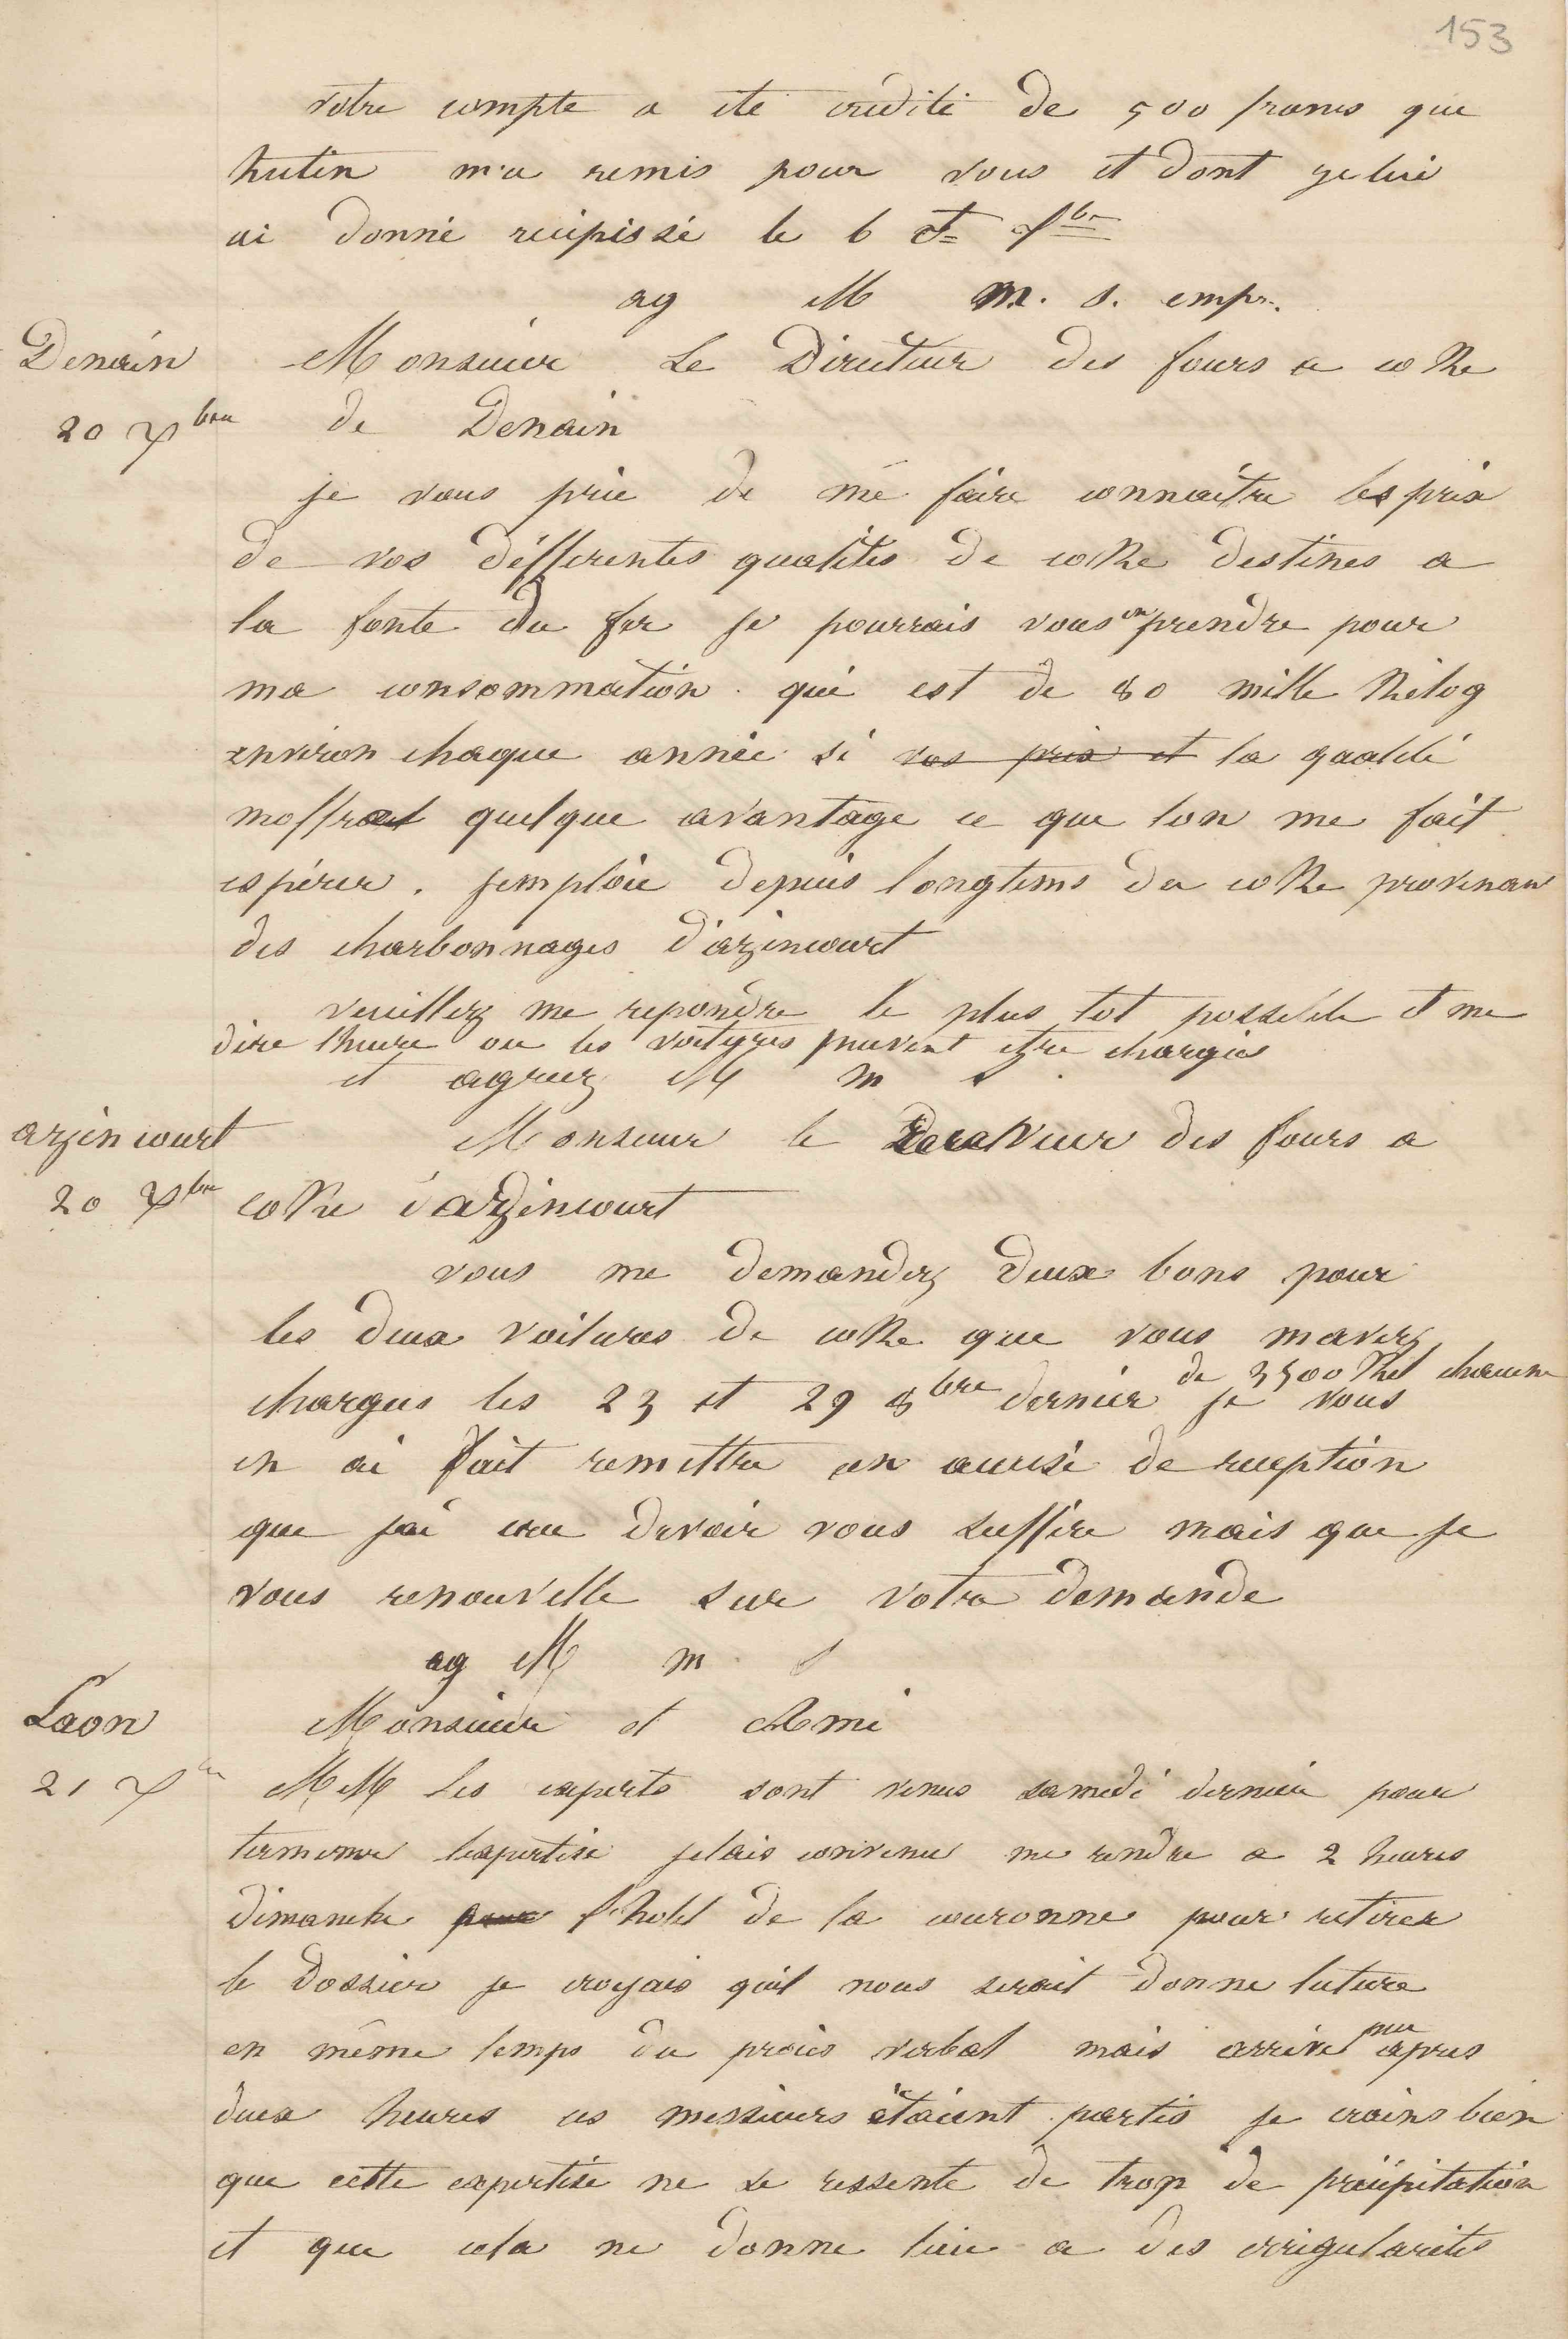 153
votre compte a ete credité de 500 francs que
hutin m'a remis pour vous et dont je lui
ai donné recipissé le 6
ag M m. s. empr.
Denain Monsieur Le Directeur des fours a coke
20 xbre de Denain
je vous prie de me faire connaitre les prix
de vos différentes qualités de coke destines a
la fonte du fer je pourrais vous en prendre pour
ma consommation qui est de 80 mille kilog
environ chaque année si vos prix et la qualité
moffrait quelque avantage ce que lon me fait
espérer. jemploie depuis longtems du coke provenan
des charbonnages d'azincourt
veuillez me repondre le plus tot possible et me
dire lheure ou les voitures peuvent etre chargées
et agreez M m s
azincourt Monsieur le Directeur des fours a
20 xbre coke d'azincourt
vous me demandez deux bons pour
les deux voitures de coke que vous mavez
chargees les 23 et 29 8bre dernier de 3500 kil chacune je vous
en ai fait remettre un accusé de reception
que jai cru devoir vous suffire mais que je
vous renouvelle sur votre demande
ag M m s
Laon Monsieur et Ami
21 xbre MM les experts sont venus samedi dernier pour
terminer lexpertise jetais convenu me rendre a 2 heures
dimanche pour l'hotel de la couronne pour retirer
le dossier je croyais quil nous serait donne lecture
en même temps du procès verbal mais arrivé peu apres
deux heures ces messieurs étaient partis je crains bien
que cette expertise ne se ressente de trop de précipitation
et que cela ne donne lieu a des irrigularités